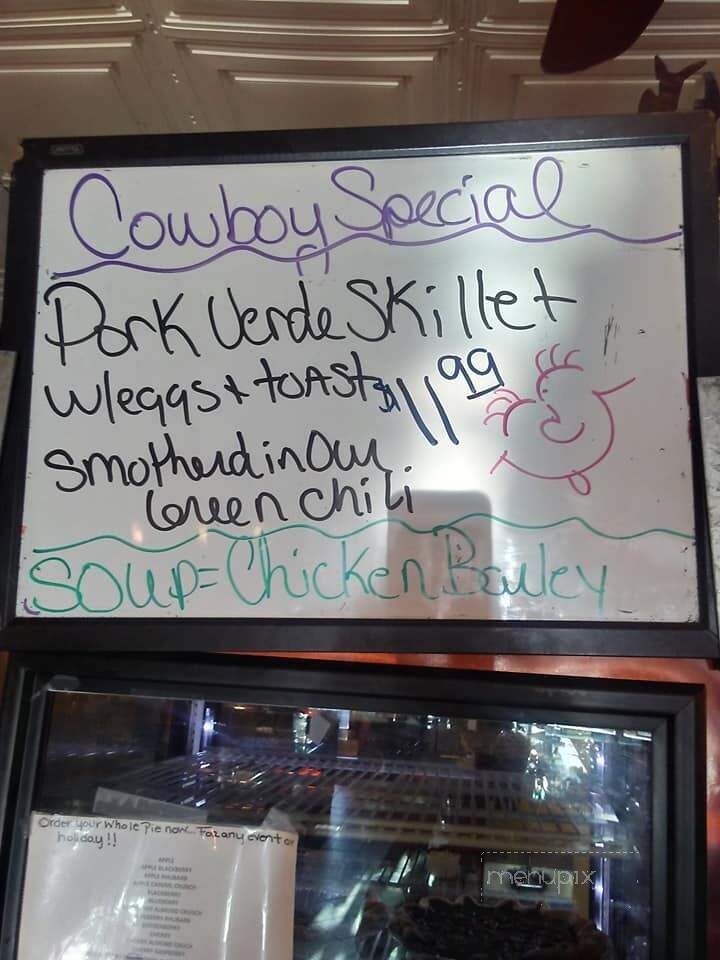 Cowboy Special
Pork Verde Skillet
w/eggs + toast $11.99
Smotherd in Our
Green chili
Soup = Chicken Barley
Order your Whole Pie now... For any event or
holiday!!
APPLE
APPLE BLACKBERRY
APPLE RHUBARB
APPLE CARAMEL CRUNCH
BLACKBERRY
BLUEBERRY
ALMOND CRUSCH
RHUBARB
CHERRY
menupix